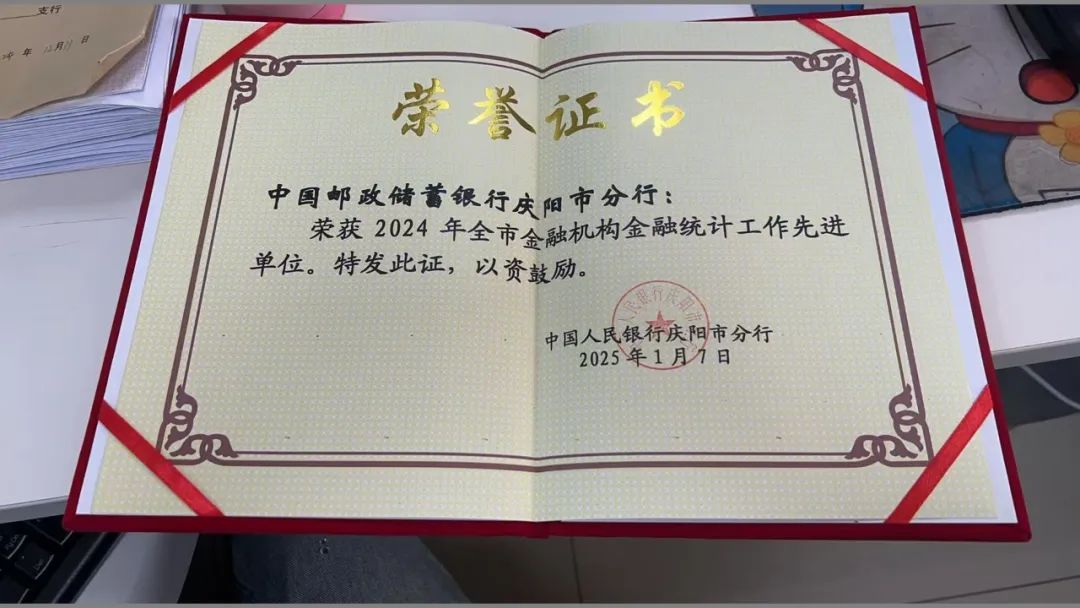 支行
年12月
日
荣誉证书
中国邮政储蓄银行庆阳市分行：
荣获 2024 年全市金融机构金融统计工作先进
单位。特发此证，以资鼓励。
人民银行庆阳市
中国人民银行庆阳市分行
2025 年 1 月 7 日